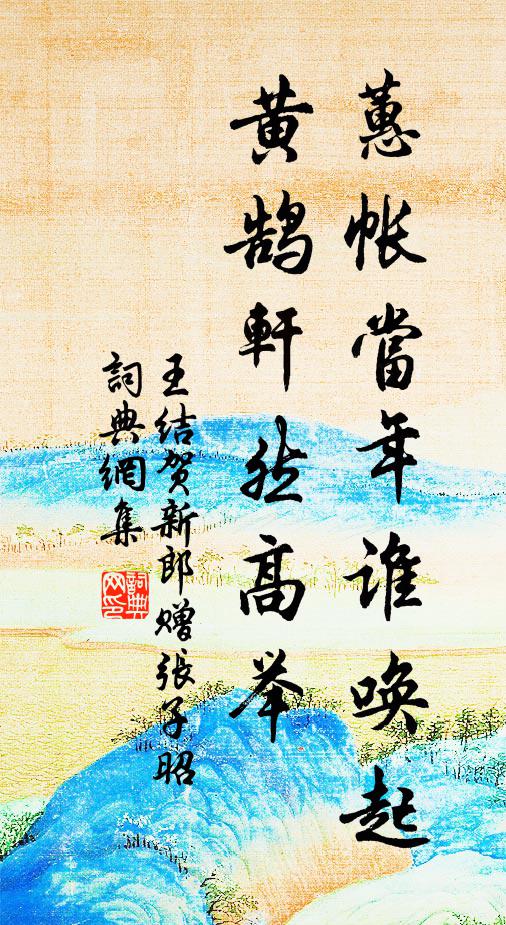 蕙帐當年谁唤起
黄鹄軒然高举
王结贺新郎赠張子昭
詞典網集
詞典网印